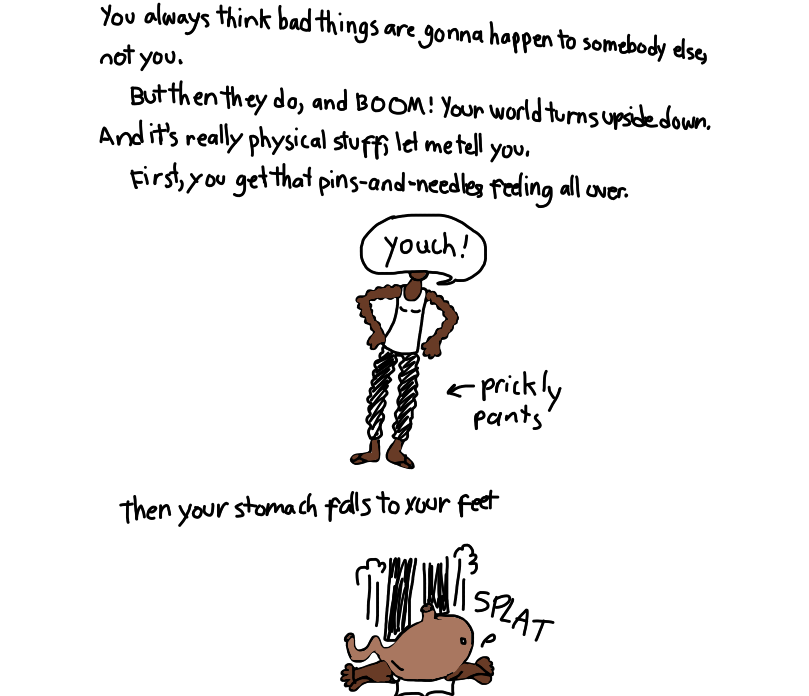 You always think bad things are gonna happen to somebody else,
not you.
But then they do, and BOOM! Your world turns upside down.
And it's really physical stuff, let me tell you.
First, you get that pins-and-needles feeling all over.
youch!
← prickly
pants
Then your stomach falls to your feet
SPLAT